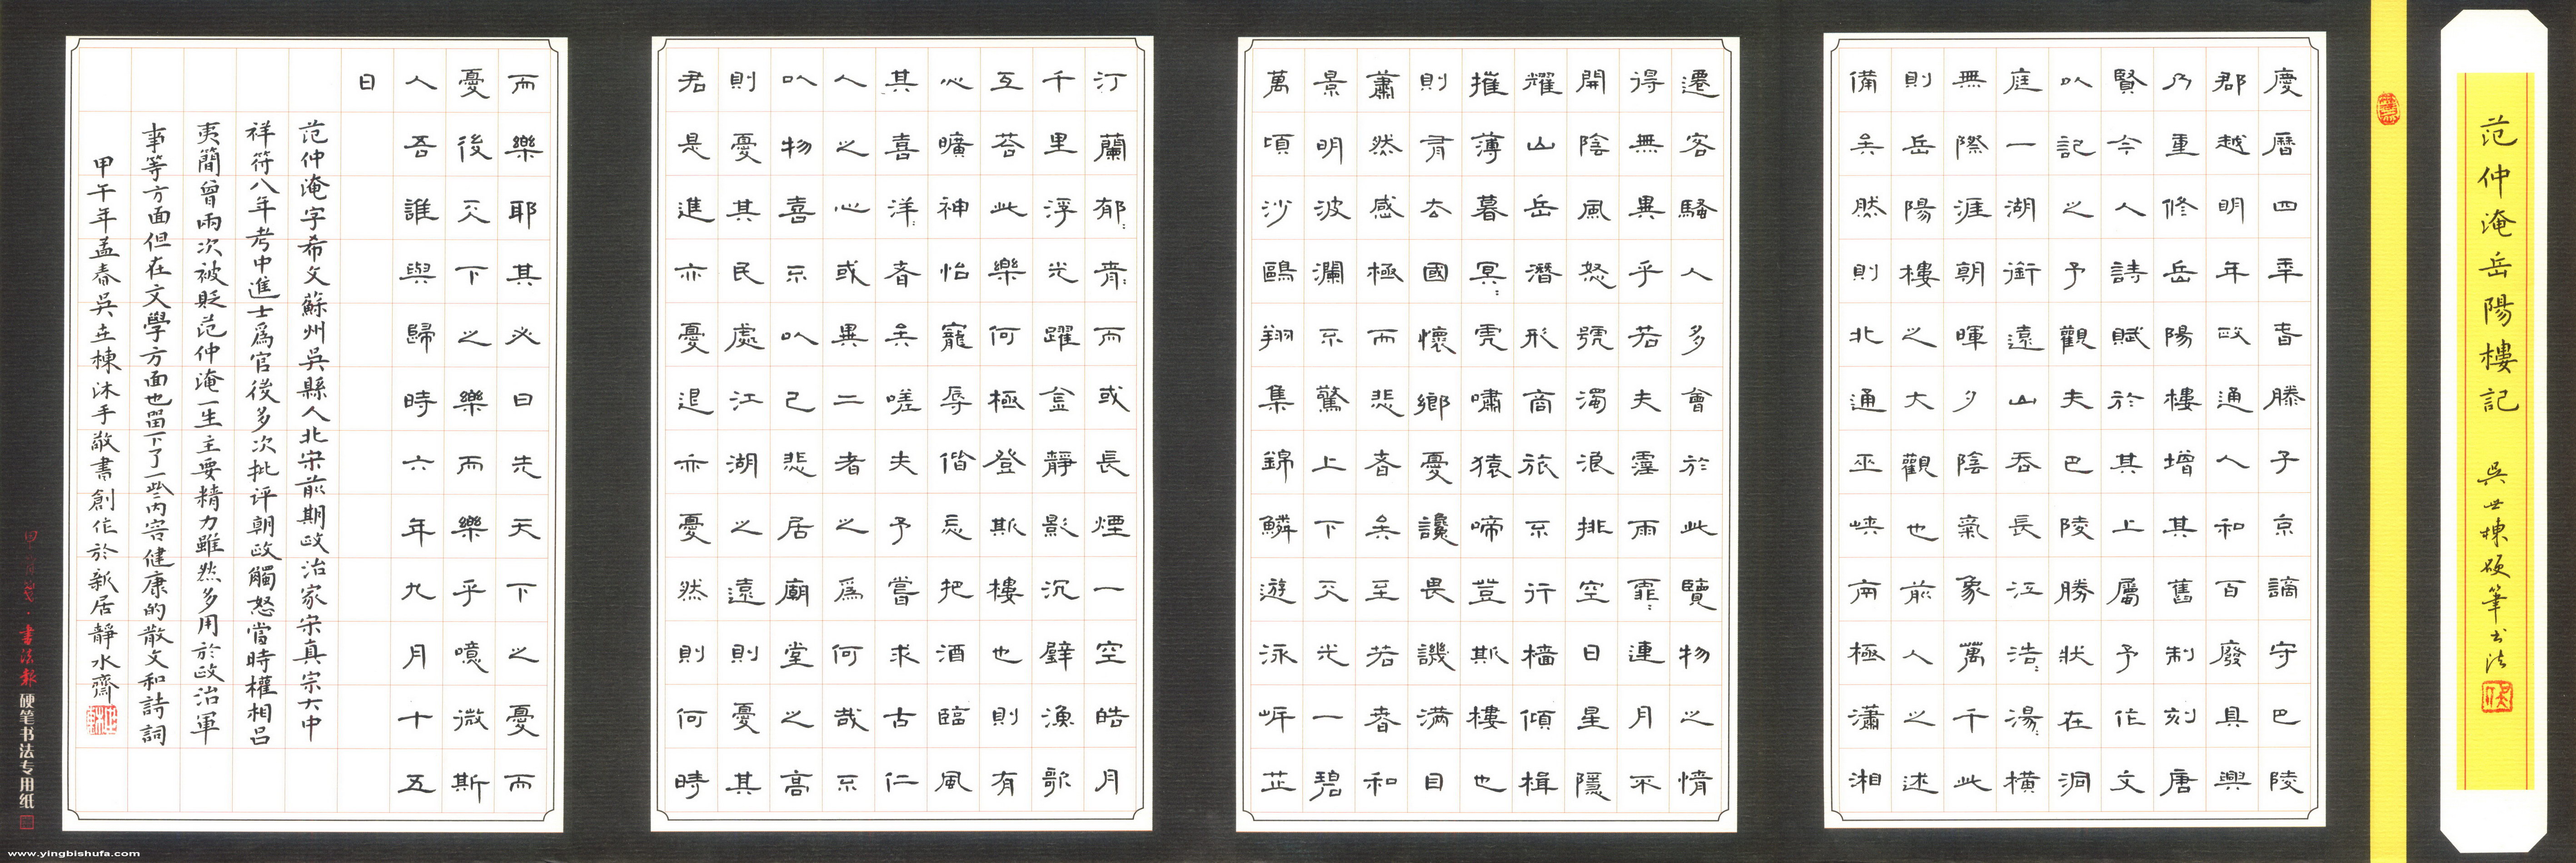 范仲淹岳陽樓記 吳世棟硬筆书法
慶曆四年春滕子京謫守巴陵
郡越明年政通人和百廢具興
乃重修岳陽樓增其舊制刻唐
賢今人詩賦於其上屬予作文
以記之予觀夫巴陵勝狀在洞
庭一湖銜遠山吞長江浩:湯:橫
無際涯朝暉夕陰氣象萬千此
則岳陽樓之大觀也前人之述
備矣然則北通巫峽南極瀟湘
遷客騷人多會於此覽物之情
得無異乎若夫霪雨霏:連月不
開陰風怒號濁浪排空日星隱
耀山岳潛形商旅不行檣傾楫
摧薄暮冥:虎嘯猿啼登斯樓也
則有去國懷鄉憂讒畏譏滿目
蕭然感極而悲者矣至若春和
景明波瀾不驚上下天光一碧
萬頃沙鷗翔集錦鱗遊泳岸芷
汀蘭郁:青:而或長煙一空皓月
千里浮光躍金靜影沉璧漁歌
互荅此樂何極登斯樓也則有
心曠神怡寵辱偕忘把酒臨風
其喜洋:者矣嗟夫予嘗求古仁
人之心或異二者之爲何哉不
以物喜不以己悲居廟堂之高
則憂其民處江湖之遠則憂其
君是進亦憂退亦憂然則何時
而樂耶其必曰先天下之憂而
憂後天下之樂而樂乎噫微斯
人吾誰與歸時六年九月十五
日
范仲淹字希文蘇州吳縣人北宋前期政治家宋真宗大中
祥符八年考中進士爲官後多次批评朝政觸怒當時權相呂
夷簡曾兩次被貶范仲淹一生主要精力雖然多用於政治軍
事等方面但在文學方面也留下了一些內容健康的散文和詩詞
甲午年孟春吳世棟沐手敬書創作於新居靜水齋
書法報 硬笔书法专用纸
www.yingbishufa.com